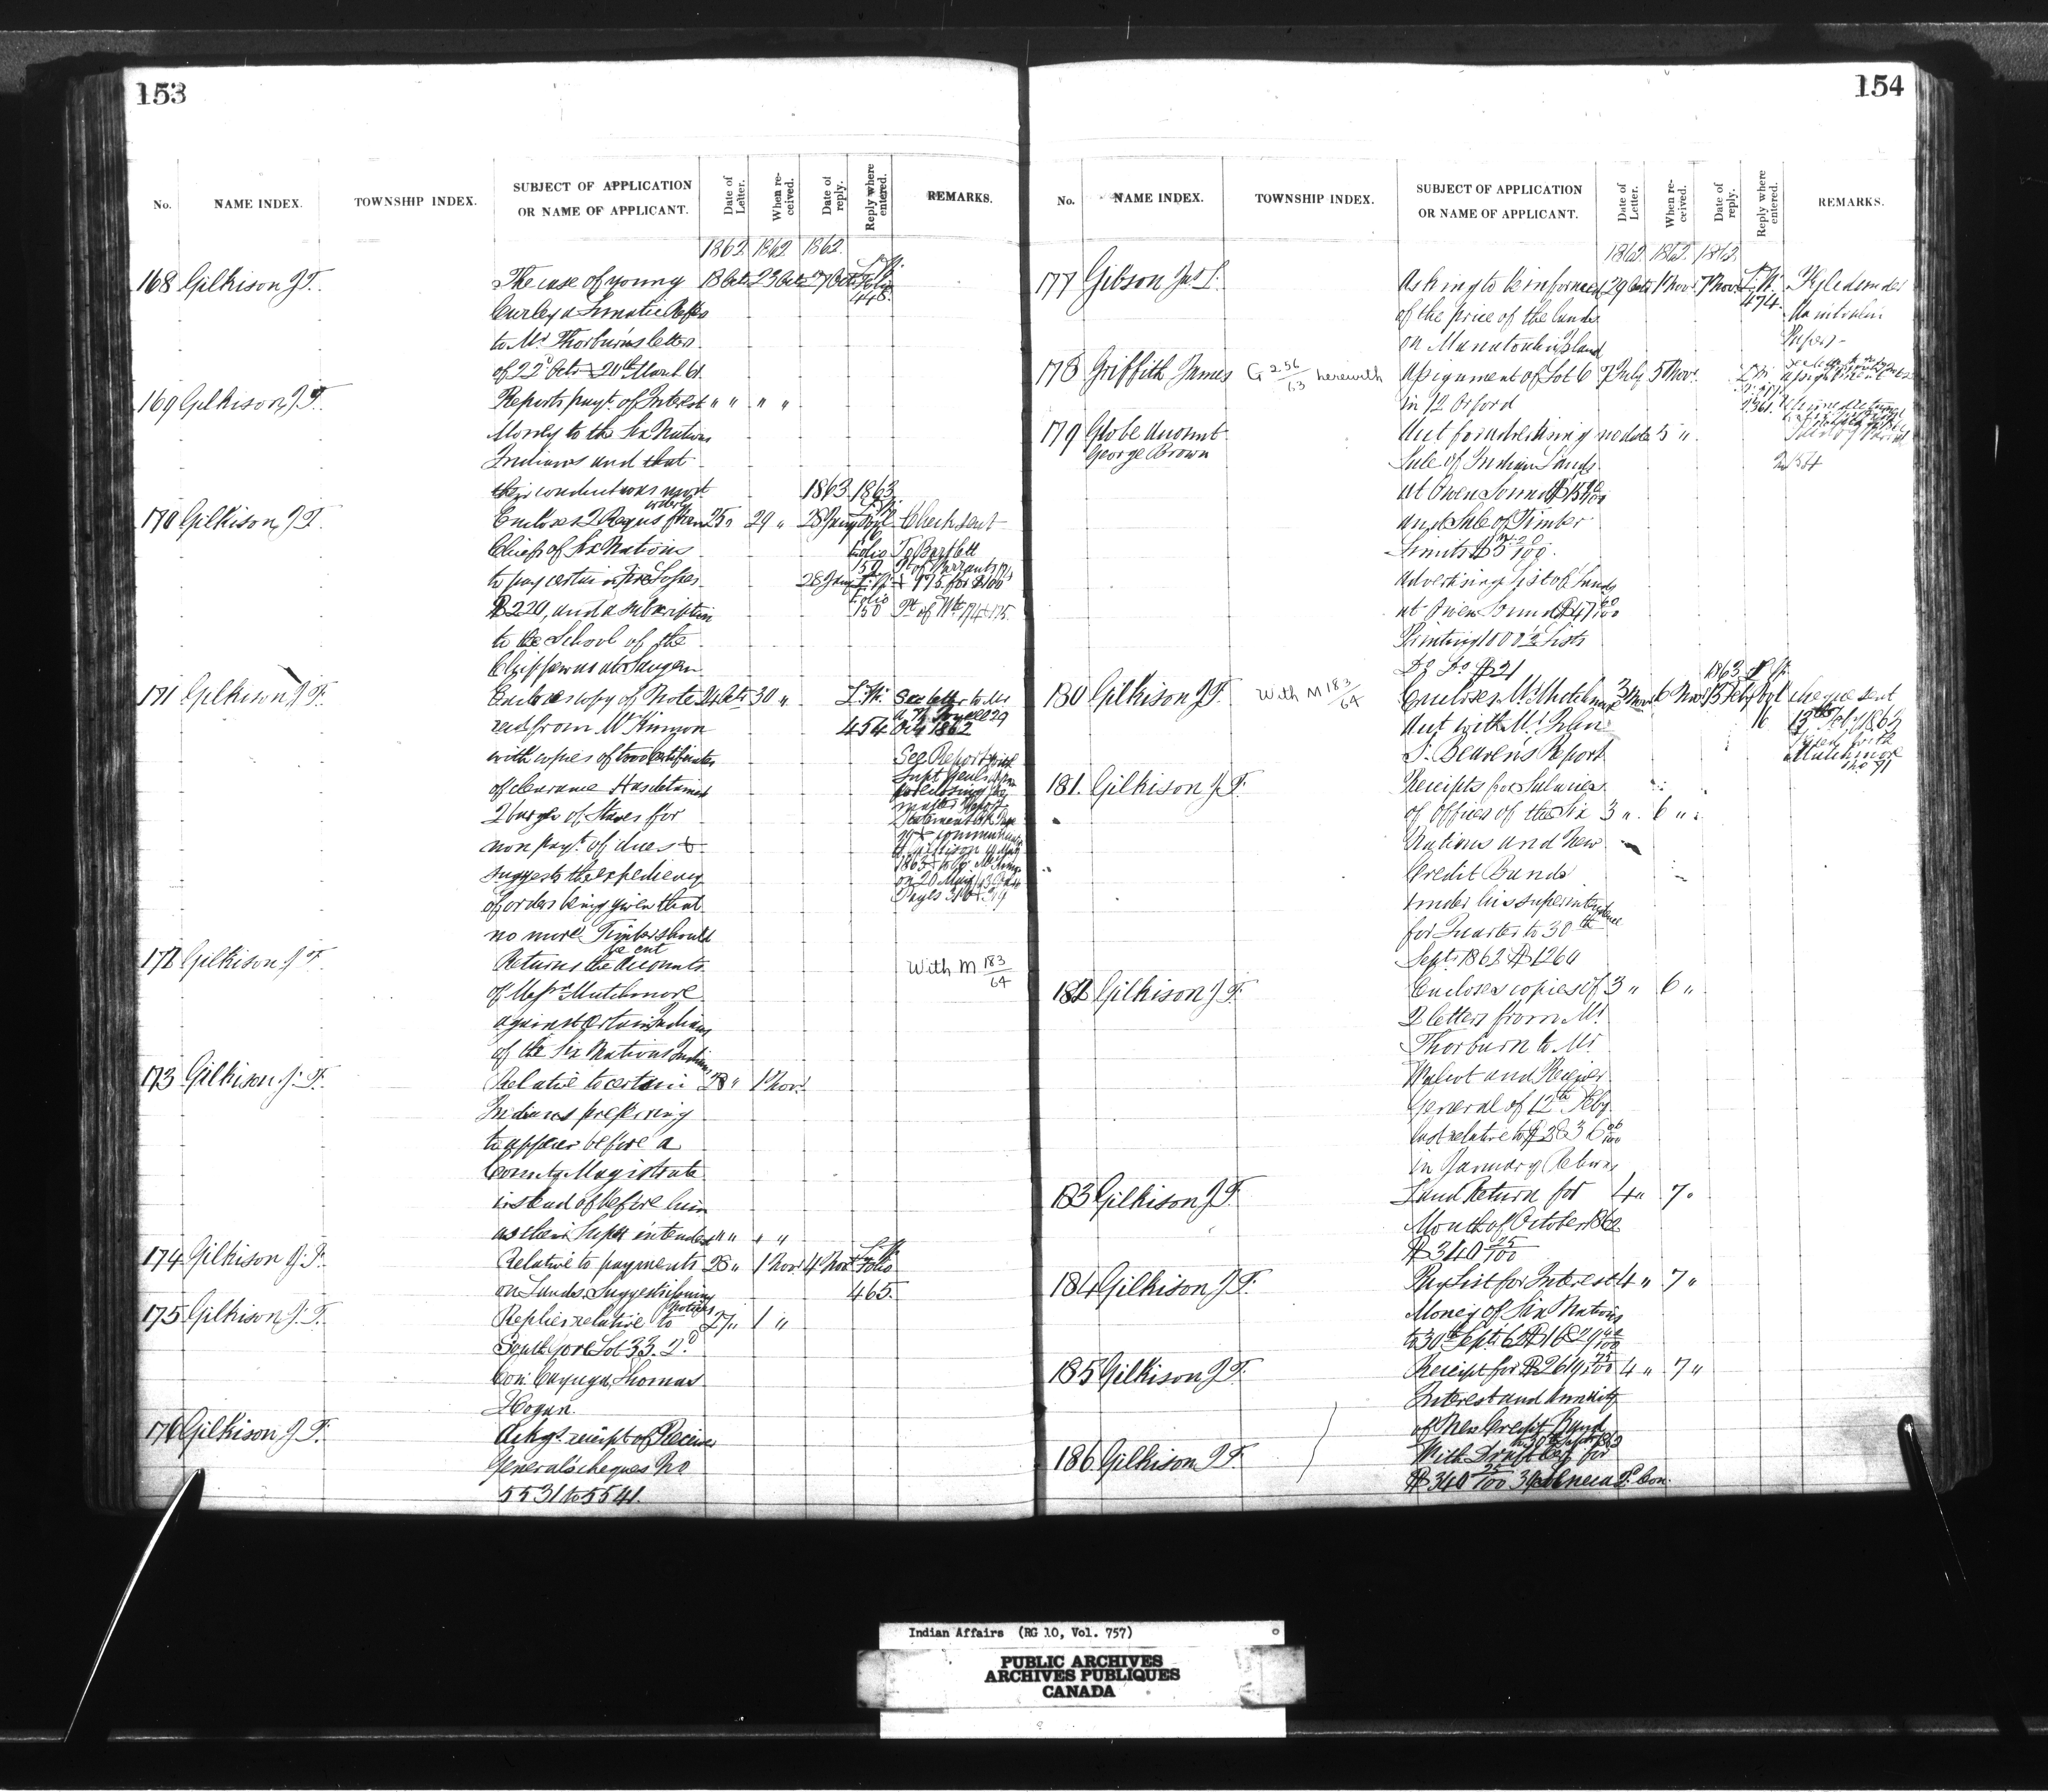 153
No.
NAME INDEX.
TOWNSHIP INDEX.
SUBJECT OF APPLICATION
OR NAME OF APPLICANT.
Date of Letter.
When received.
Date of reply.
Reply where entered.
REMARKS.
1862 1862 1862
168 Gilkison J T. The case of young 18 Octr 23 Octr 27 Octr L. W. Folio 448.
Curley a Lunatic Refers
to Mr Thorburns letter
of 22d Octr 20th March 61.
169 Gilkison J T. Reports payt. of Interest " " " "
Money to the Six Nations
Indians and that
their conduct was most
orderly
1863 1863
170 Gilkison J T. Encloses 2 Requs from 25 " 29 " 28 Jany Check sent
Chiefs of Six Nations Folio To Bartlett
to pay certain 28 Jany 975 for $100
$220, and a subscription Folio 150 Pt of Wt 174 & 175.
to the School of the
Chippewas at Saugeen
171 Gilkison J T. Encloses copy of Note 24 Octr 30 " L. W. See letter to Mr
recd from Wm Kinnon 454 29 Oct 1862
with copies of two certificates See Report
of clearance Has detained
2 barges of Staves for
non payt. of dues &
suggests the expediency
of orders being given that
no more Timber should
be cut
172 Gilkison J T. Returns the Accounts With M 183/64
of Messrs Mutchmore
against certain Indians
of the Six Nations Indians
173 Gilkison J. T. Relative to certain 28 " 1 Nov.
Indians preferring
to appear before a
County Magistrate
instead of before him
as their Superintendent " " " "
174 Gilkison J. T. Relative to payments 28 " 1 Nov. 4 Nov. L. W. Folio
on Lands. Suggests issuing 465.
Notices
175 Gilkison J. T. Replies relative to 27 " 1 "
South Gore Lot 33. 2d
Con: Cayuga, Thomas
Hogan.
176 Gilkison J T. Ackgs. receipt of Receiver
General's cheques No
5531 to 5541.
154
No.
NAME INDEX.
TOWNSHIP INDEX.
SUBJECT OF APPLICATION
OR NAME OF APPLICANT.
Date of Letter.
When received.
Date of reply.
Reply where entered.
REMARKS.
1862. 1862. 1862.
177 Gibson Jas S. Asking to be informed 29 Octr 1 Nov. 7 Nov. L. W. 474. Fyled under
of the price of the lands Manitoulin
on Manatoulin Island Papers
178 Griffith James G 256/63 herewith Assignment of Lot 6 7 July 5 Nov.
in 12 Orford
179 Globe Account Acct for advertising no date 5 "
George Brown Sale of Indian Lands
at Owen Sound
and Sale of Timber
Limits
Advertising List of Lands
at Owen Sound $47 60/100
Printing 1000 Lists
Do Do $21
1863
180 Gilkison J T. With M 183/64 Encloses Mr Mutchmore 3 Nov 6 Nov 13 Feby 16 cheque sent
Acct with Mr John 13th Feby 1863
S. Beaven's Report Fyled with Mutchmore
181. Gilkison J T. Receipts for Salaries
of Officers of the Six 3 " 6 "
Nations and New
Credit Bands
under his superintendence
for Quarter to 30th
Sept. 1862 $1260
182 Gilkison J T. Encloses copies of 3 " 6 "
2 letters from Mr
Thorburn to Mr
Walcot and Receiver
General of 12th Feby
last relative to $2836 06/100
in January Return
183 Gilkison J T. Land Return for 4 " 7 "
Month of October 1862
$340 25/100
184 Gilkison J T. Pay List for Interest 4 " 7 "
Money of Six Nations
to 30th Sept. 62
185 Gilkison J T. Receipt for $2619 75/100 4 " 7 "
Interest and Annuity
of New Credit Band
to 30th Sept 1862
186 Gilkison J T. With Draft for
$340 25/100 Seneca 2d Con.
Indian Affairs (RG 10, Vol. 757)
PUBLIC ARCHIVES
ARCHIVES PUBLIQUES
CANADA